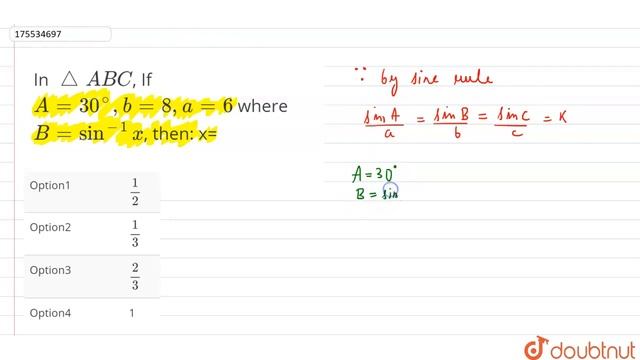 175534697
In △ ABC, If
A = 30°, b = 8, a = 6 where
B = sin⁻¹ x, then: x=
Option1 1/2
Option2 1/3
Option3 2/3
Option4 1
∵ by sine rule
sinA/a = sinB/b = sinC/c = K
A = 30°
B = sin
doubtnut